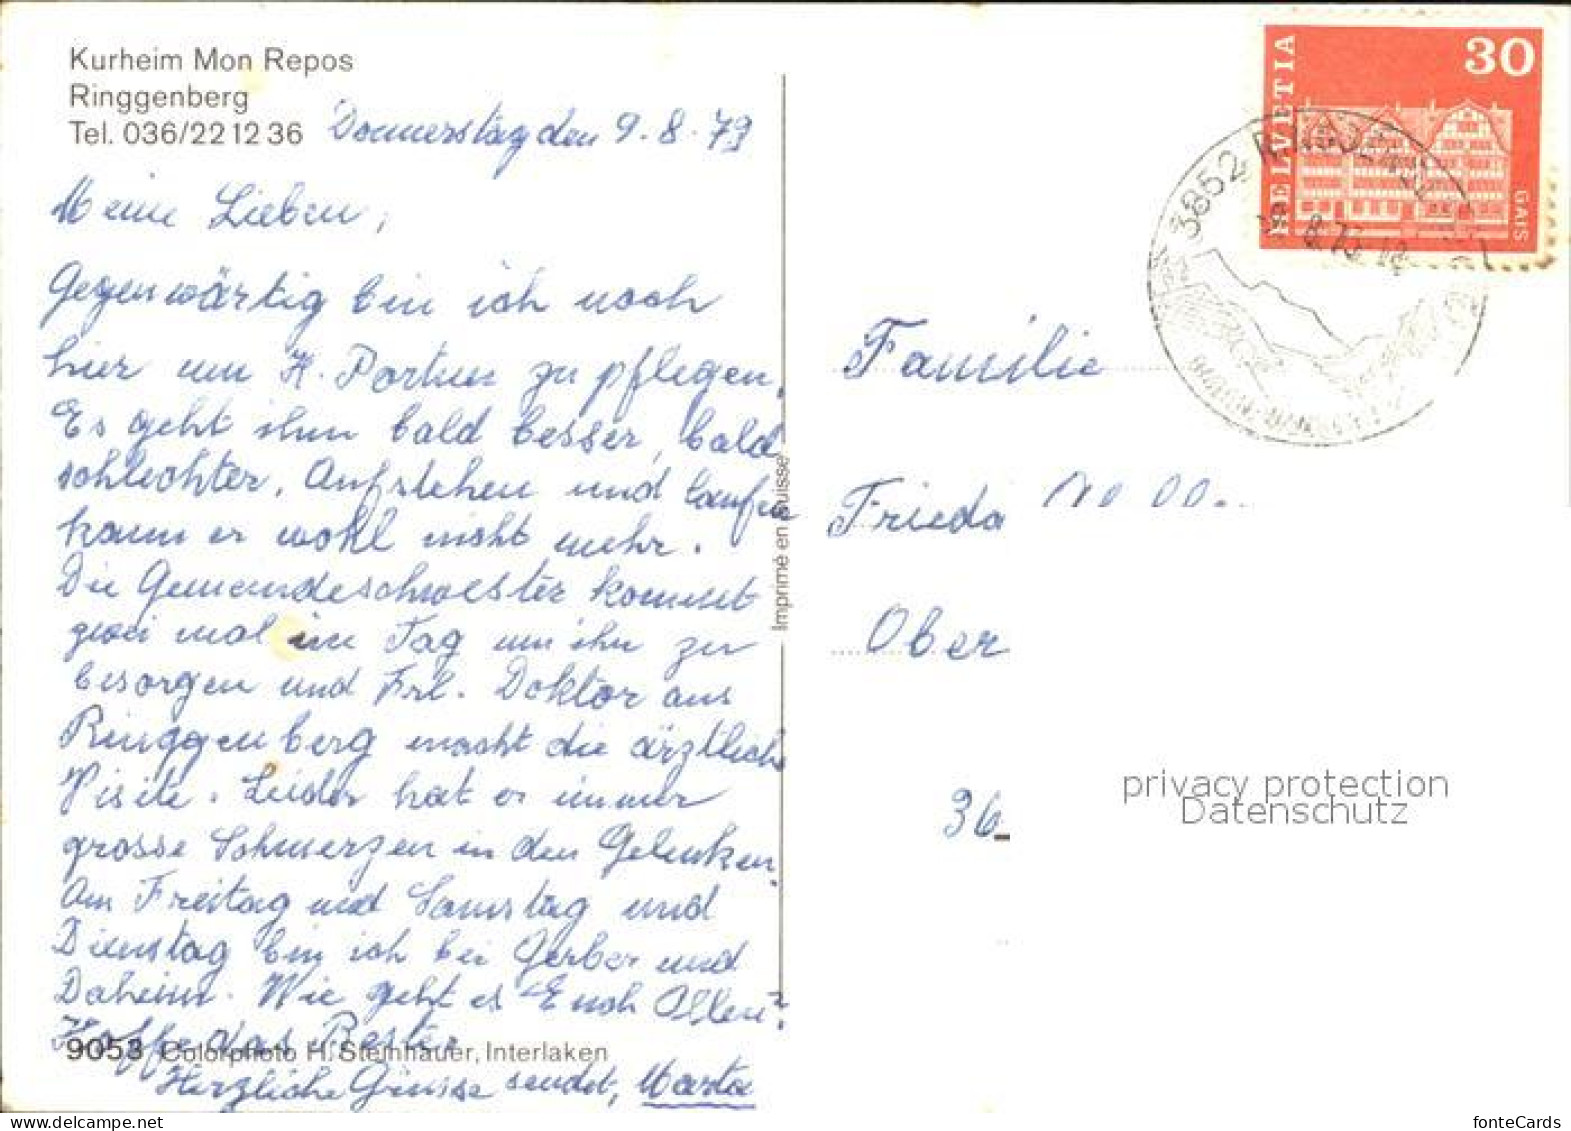 Kurheim Mon Repos
Ringgenberg
Tel. 036/22 12 36
Donnerstag den 9.8.79
Meine Lieben,
Gegenwärtig bin ich noch
hier um H. Portner zu pflegen.
Es geht ihm bald besser, bald
schlechter. Aufstehen und laufen
kann er wohl nicht mehr.
Die Gemeindeschwester kommt
zwei mal im Tag um ihn zu
besorgen und Frl. Doktor aus
Ringgenberg macht die ärztliche
Visite. Leider hat er immer
grosse Schmerzen in den Gelenken.
Am Freitag und Samstag und
Dienstag bin ich bei Gerber und
Daheim. Wie geht es Euch Allen?
Hoffe das Beste
Herzliche Grüsse sendet, Marta
9053 Colorphoto H. Steinhauer, Interlaken
Imprimé en Suisse
HELVETIA
30
GAIS
3852 RINGGENBERG
Familie
Frieda
Ober
36
privacy protection
Datenschutz
fonteCards